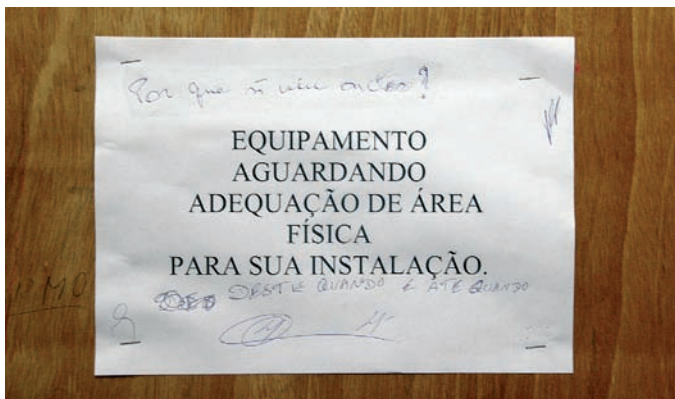 Por que ñ veu antes?
EQUIPAMENTO
AGUARDANDO
ADEQUAÇÃO DE ÁREA
FÍSICA
PARA SUA INSTALAÇÃO.
DESTE QUANDO E ATE QUANDO
MO